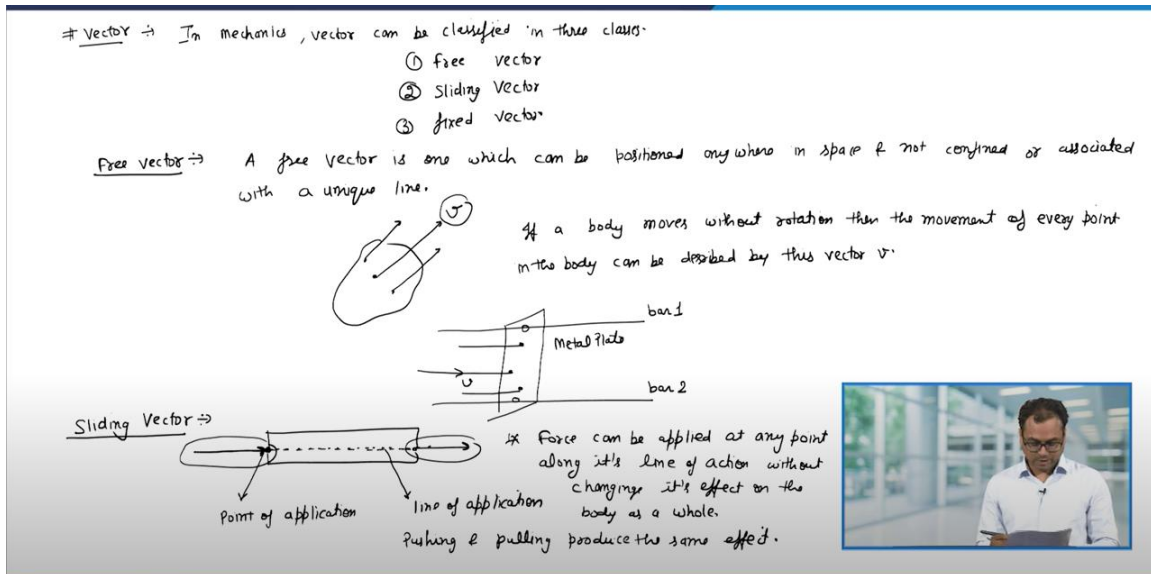 # Vector ÷ In mechanics, vector can be classified in three classes.
① Free vector
② Sliding Vector
③ fixed vector.
Free vector ÷ A free vector is one which can be positioned any where in space & not confined or associated
with a unique line.
v
If a body moves without rotation then the movement of every point
in the body can be described by this vector v.
bar 1
Metal Plate
v
bar 2
Sliding Vector ÷
* Force can be applied at any point
along it's line of action without
changinge it's effect on the
body as a whole.
Point of application
line of application
Pushing & pulling produce the same effect.